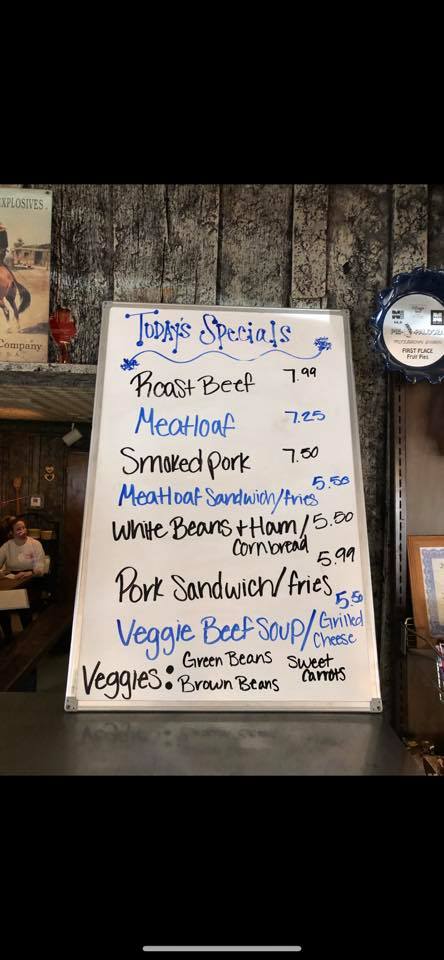 EXPLOSIVES
Company
TODAY'S Specials
Roast Beef 7.99
Meatloaf 7.25
Smoked pork 7.50
Meatloaf Sandwich/fries 5.50
White Beans + Ham/ 5.50
Cornbread
Pork Sandwich/fries 5.99
Veggie Beef Soup/Grilled Cheese 5.50
Veggies: Green Beans Sweet Carrots
Brown Beans
FIRST PLACE
Fruit Pies